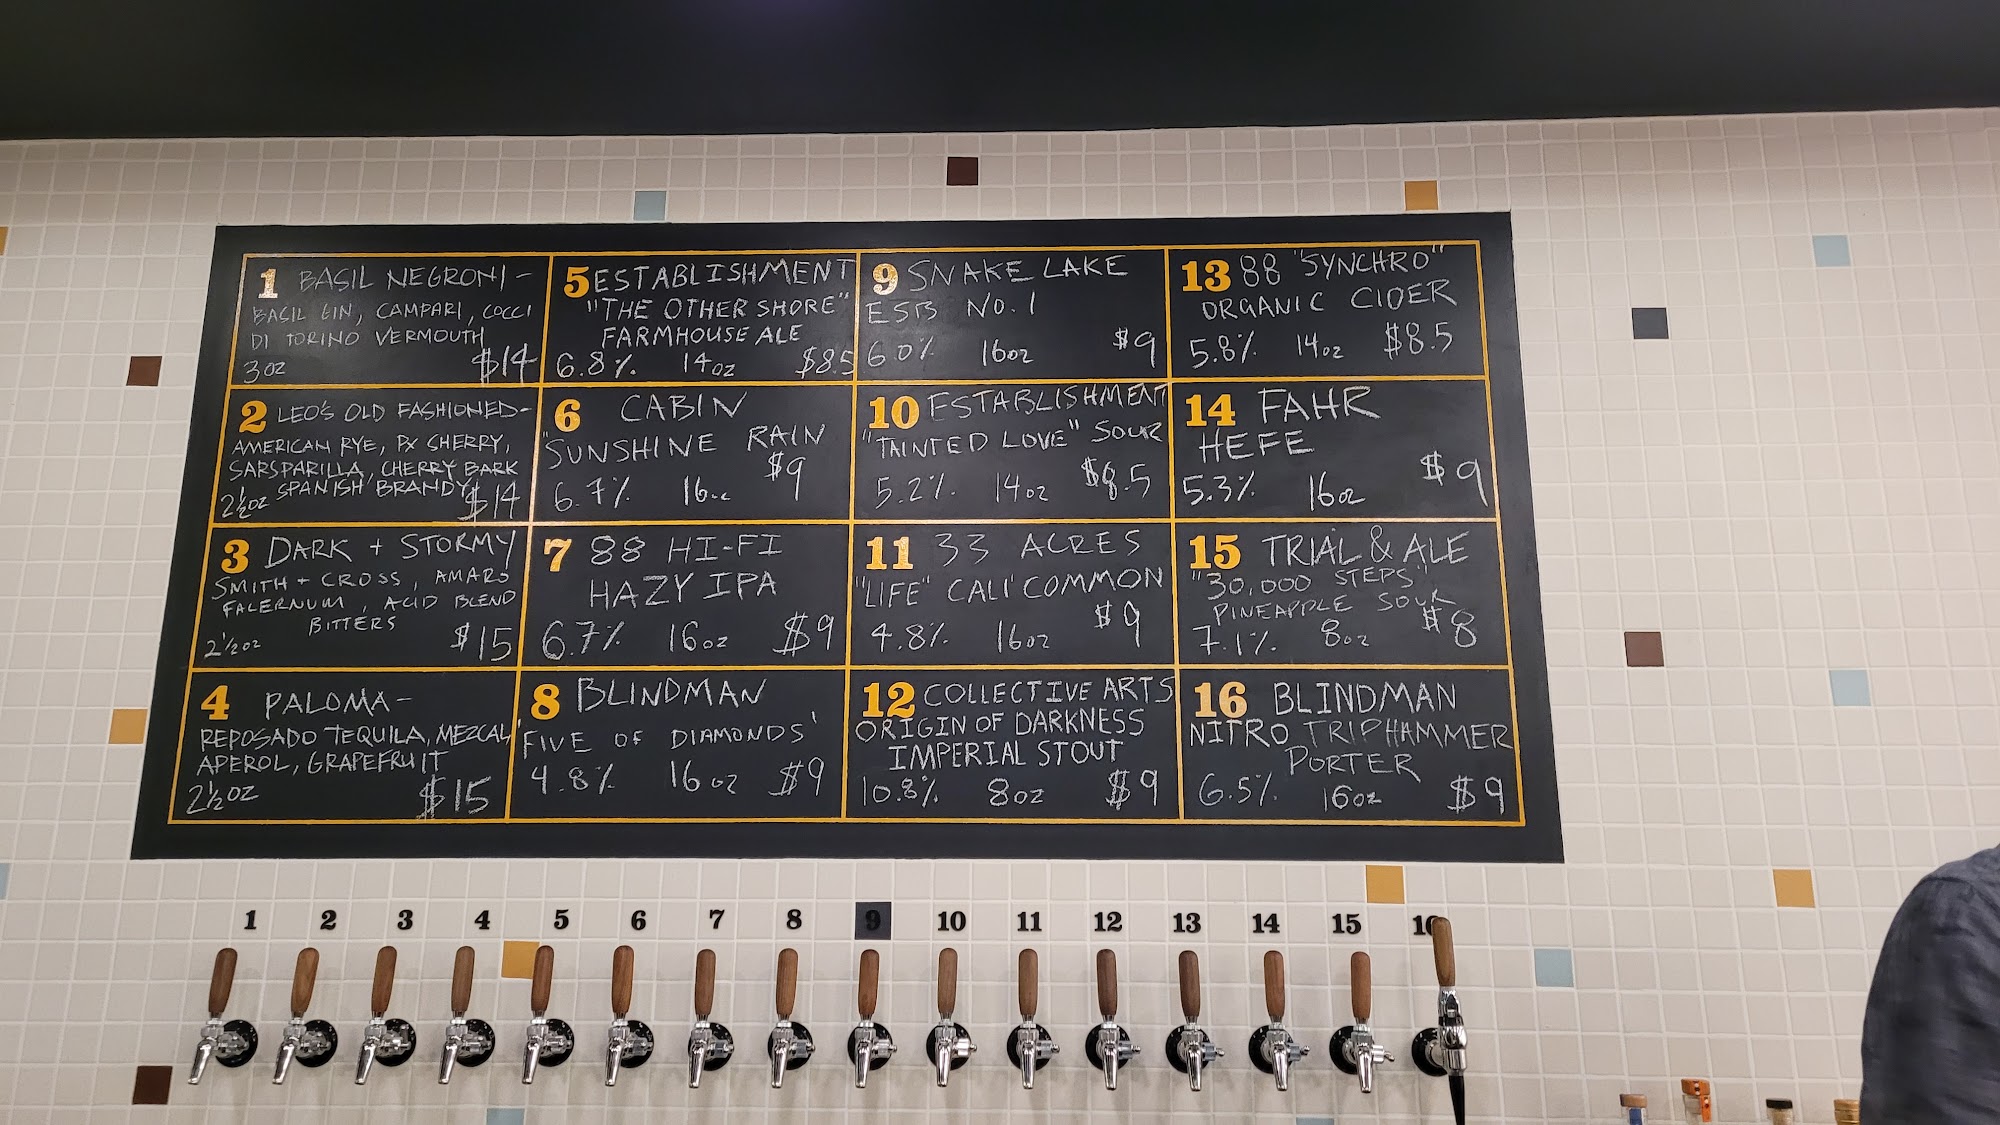 1 BASIL NEGRONI -
BASIL GIN, CAMPARI, COCCI
DI TORINO VERMOUTH
3oz $14
2 LEO'S OLD FASHIONED -
AMERICAN RYE, PX SHERRY,
SARSPARILLA, CHERRY BARK
SPANISH BRANDY
2½oz $14
3 DARK + STORMY
SMITH + CROSS, AMARO
FALERNUM, ACID BLEND
BITTERS
2½oz $15
4 PALOMA -
REPOSADO TEQUILA, MEZCAL,
APEROL, GRAPEFRUIT
2½oz $15
5 ESTABLISHMENT
"THE OTHER SHORE"
FARMHOUSE ALE
6.8% 14oz $8.5
6 CABIN
"SUNSHINE RAIN
6.7% 16oz $9
7 88 HI-FI
HAZY IPA
6.7% 16oz $9
8 BLINDMAN
'FIVE OF DIAMONDS'
4.8% 16oz $9
9 SNAKE LAKE
ESB No. 1
6.0% 16oz $9
10 ESTABLISHMENT
"TAINTED LOVE" SOUR
5.2% 14oz $8.5
11 33 ACRES
"LIFE" CALI COMMON
4.8% 16oz $9
12 COLLECTIVE ARTS
ORIGIN OF DARKNESS
IMPERIAL STOUT
10.8% 8oz $9
13 88 "SYNCHRO"
ORGANIC CIDER
5.8% 14oz $8.5
14 FAHR
HEFE
5.3% 16oz $9
15 TRIAL & ALE
"30,000 STEPS"
PINEAPPLE SOUR
7.1% 8oz $8
16 BLINDMAN
NITRO TRIPHAMMER
PORTER
6.5% 16oz $9
1 2 3 4 5 6 7 8 9 10 11 12 13 14 15 16